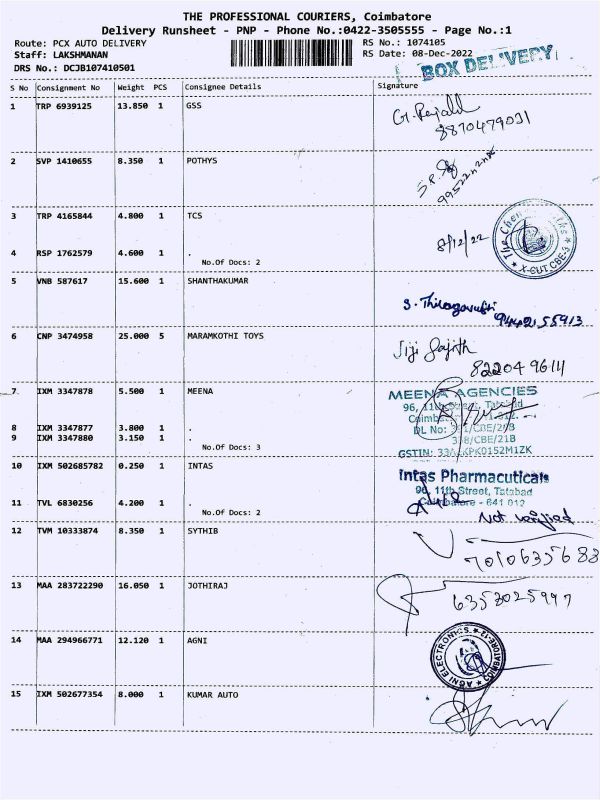 THE PROFESSIONAL COURIERS, Coimbatore
Delivery Runsheet - PNP - Phone No.:0422-3505555 - Page No.:1
Route: PCX AUTO DELIVERY
RS No.: 1074105
Staff: LAKSHMANAN
RS Date: 08-Dec-2022
DRS No.: DCJB107410501
BOX DELIVERY
S No Consignment No Weight PCS Consignee Details Signature
1 TRP 6939125 13.850 1 GSS
8870479031
2 SVP 1410655 8.350 1 POTHYS
3 TRP 4165844 4.800 1 TCS
8/12/22
The Chen
X-CUT CBE-3
4 RSP 1762579 4.600 1 .
No.Of Docs: 2
5 VNB 587617 15.600 1 SHANTHAKUMAR
9442155913
6 CNP 3474958 25.000 5 MARAMKOTHI TOYS
Jiji Sajith
82204 9614
7 IXM 3347878 5.500 1 MEENA
MEENA AGENCIES
96, 11th Street, Tatabad
8 IXM 3347877 3.800 1
9 IXM 3347880 3.150 1 .
No.Of Docs: 3
DL No:
/CBE/20B
/CBE/21B
GSTIN:
10 IXM 502685782 0.250 1 INTAS
Intas Pharmacuticals
96, 11th Street, Tatabad
Coimbatore - 641 012
11 TVL 6830256 4.200 1 .
No.Of Docs: 2
Not verified
12 TVM 10333874 8.350 1 SYTHIB
7010635688
13 MAA 283722290 16.050 1 JOTHIRAJ
6353025997
14 MAA 294966771 12.120 1 AGNI
AGNI ELECTRONICS
COIMBATORE-12
15 IXM 502677354 8.000 1 KUMAR AUTO